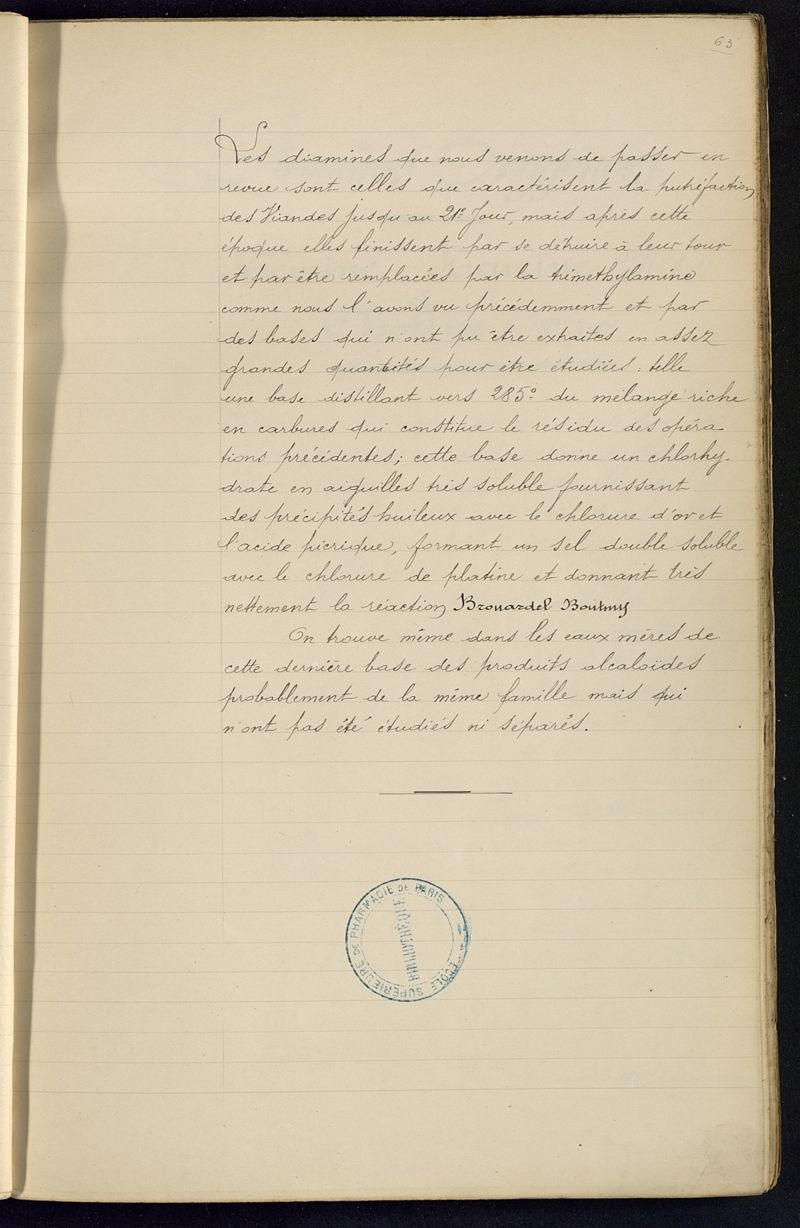 63
Les diamines que nous venons de passer en
revue sont celles que caractérisent la putréfaction
des Viandes jusqu'au 21e Jour, mais après cette
époque elles finissent par se détruire à leur tour
et par être remplacées par la triméthylamine
comme nous l'avons vu précédemment et par
des bases qui n'ont pu être extraites en assez
grandes quantités pour être étudiées : telle
une base distillant vers 285° du mélange riche
en carbures qui constitue le résidu des opéra-
tions précédentes ; cette base donne un chlorhy-
drate en aiguilles très soluble fournissant
des précipités huileux avec le chlorure d'or et
l'acide picrique, formant un sel double soluble
avec le chlorure de platine et donnant très
nettement la réaction Brouardel Boutmy
On trouve même dans les eaux mères de
cette dernière base des produits alcaloïdes
probablement de la même famille mais qui
n'ont pas été étudiés ni séparés.
ECOLE SUPÉRIEURE DE PHARMACIE DE PARIS
BIBLIOTHÈQUE